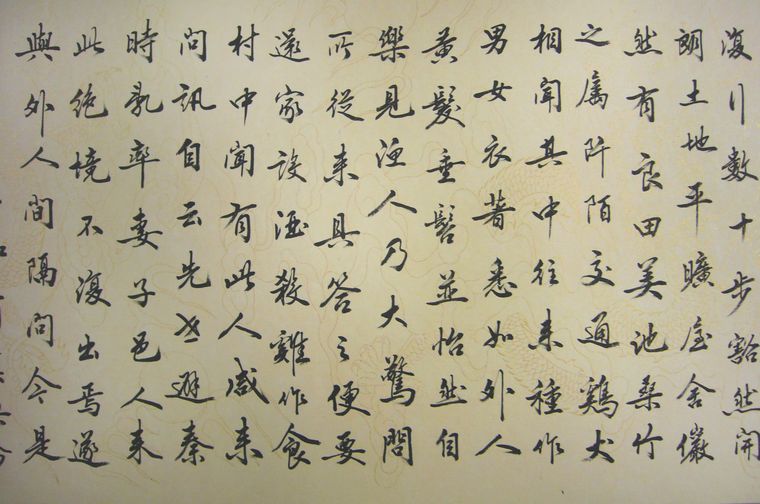 復行數十步豁然開
朗土地平曠屋舍儼
然有良田美池桑竹
之屬阡陌交通鷄犬
相聞其中往來種作
男女衣著悉如外人
黃髮垂髫並怡然自
樂見漁人乃大驚問
所從來具答之便要
還家設酒殺雞作食
村中聞有此人咸來
問訊自云先世避秦
時亂率妻子邑人來
此絕境不復出焉遂
與外人間隔問今是